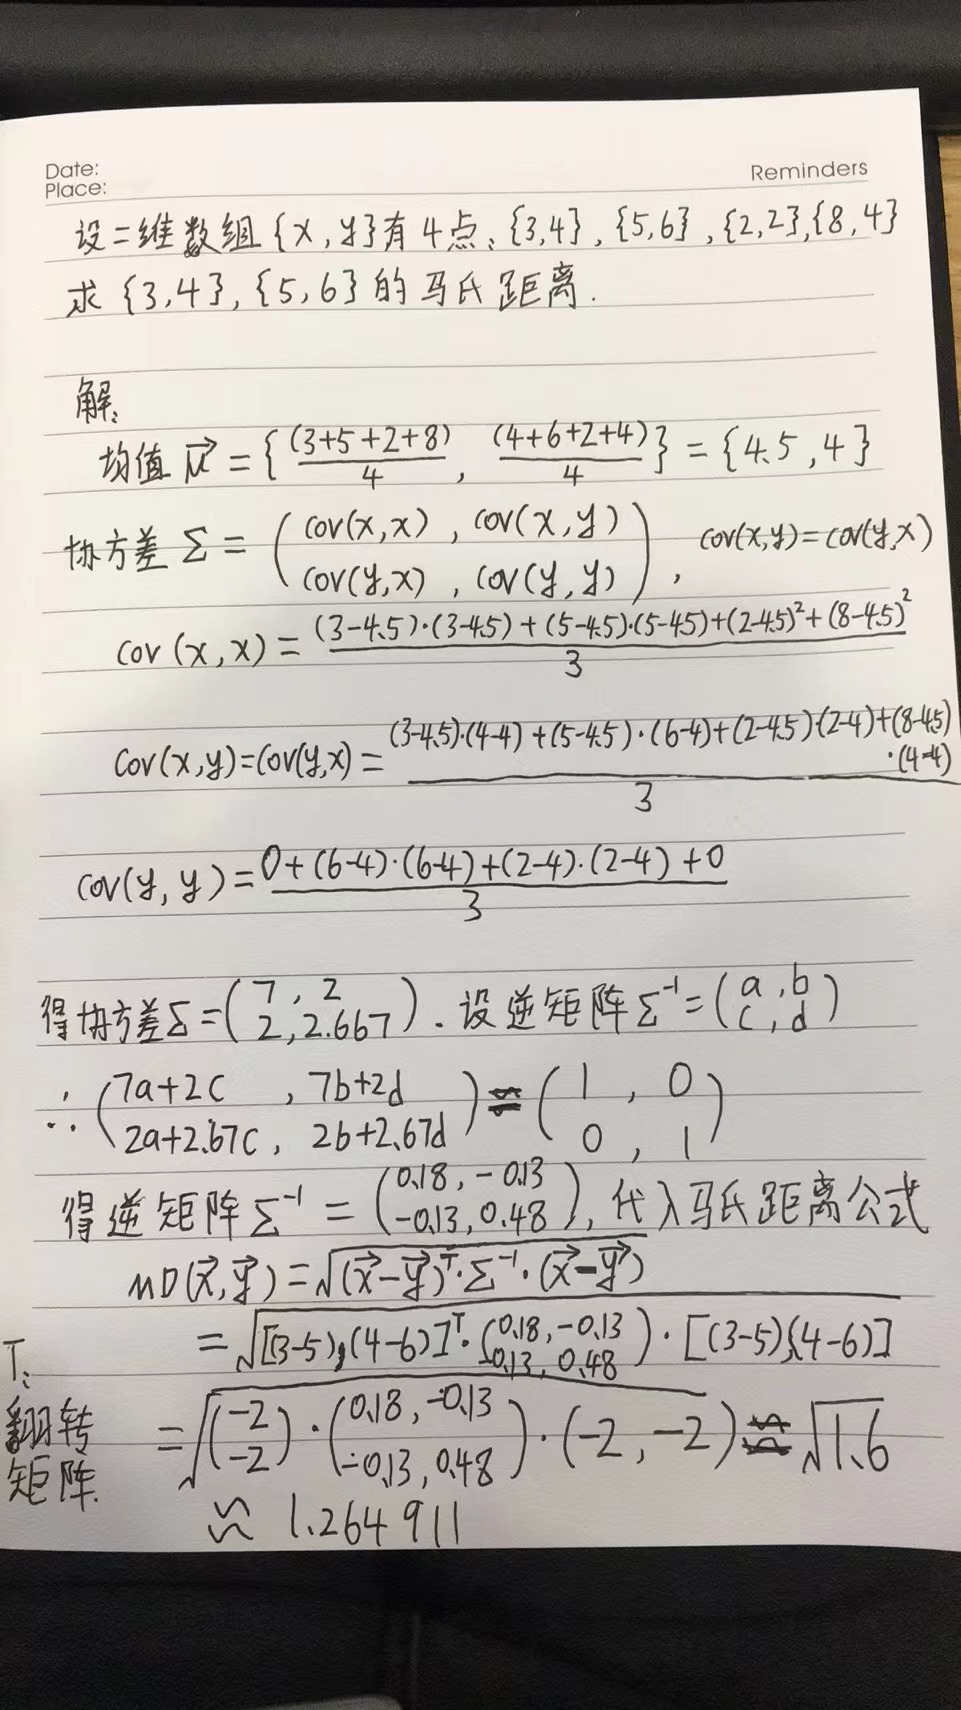 Date:
Place:
Reminders
设二维数组{x,y}有4点:{3,4},{5,6},{2,2},{8,4}
求{3,4},{5,6}的马氏距离.
解:
均值 μ⃗ = {(3+5+2+8)/4, (4+6+2+4)/4} = {4.5,4}
协方差 Σ = (cov(x,x), cov(x,y) cov(y,x), cov(y,y)), cov(x,y)=cov(y,x)
cov(x,x) = ((3-4.5)·(3-4.5)+(5-4.5)·(5-4.5)+(2-4.5)²+(8-4.5)²)/3
cov(x,y)=cov(y,x)= ((3-4.5)·(4-4)+(5-4.5)·(6-4)+(2-4.5)·(2-4)+(8-4.5)·(4-4))/3
cov(y,y)= (0+(6-4)·(6-4)+(2-4)·(2-4)+0)/3
得协方差Σ=(7,2 2,2.667). 设逆矩阵Σ⁻¹=(a,b c,d)
∴ (7a+2c, 7b+2d 2a+2.67c, 2b+2.67d) = (1,0 0,1)
得逆矩阵Σ⁻¹ = (0.18,-0.13 -0.13,0.48), 代入马氏距离公式
MD(x⃗,y⃗)=√((x⃗-y⃗)ᵀ·Σ⁻¹·(x⃗-y⃗))
= √([(3-5),(4-6)]ᵀ·(0.18,-0.13 -0.13,0.48)·[(3-5),(4-6)])
T:
翻转
矩阵.
= √((-2 -2)·(0.18,-0.13 -0.13,0.48)·(-2,-2)) ≈ √1.6
≈ 1.264911